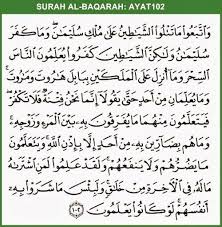 SURAH AL-BAQARAH: AYAT102
وَٱتَّبَعُوا۟ مَا تَتْلُوا۟ ٱلشَّيَٰطِينُ عَلَىٰ مُلْكِ سُلَيْمَٰنَ وَمَا كَفَرَ
سُلَيْمَٰنُ وَلَٰكِنَّ ٱلشَّيَٰطِينَ كَفَرُوا۟ يُعَلِّمُونَ ٱلنَّاسَ
ٱلسِّحْرَ وَمَآ أُنزِلَ عَلَى ٱلْمَلَكَيْنِ بِبَابِلَ هَٰرُوتَ وَمَٰرُوتَ
وَمَا يُعَلِّمَانِ مِنْ أَحَدٍ حَتَّىٰ يَقُولَآ إِنَّمَا نَحْنُ فِتْنَةٌ فَلَا تَكْفُرْ
فَيَتَعَلَّمُونَ مِنْهُمَا مَا يُفَرِّقُونَ بِهِۦ بَيْنَ ٱلْمَرْءِ وَزَوْجِهِۦ
وَمَا هُم بِضَآرِّينَ بِهِۦ مِنْ أَحَدٍ إِلَّا بِإِذْنِ ٱللَّهِ وَيَتَعَلَّمُونَ
مَا يَضُرُّهُمْ وَلَا يَنفَعُهُمْ وَلَقَدْ عَلِمُوا۟ لَمَنِ ٱشْتَرَىٰهُ
مَا لَهُۥ فِى ٱلْءَاخِرَةِ مِنْ خَلَٰقٍ وَلَبِئْسَ مَا شَرَوْا۟ بِهِۦٓ
أَنفُسَهُمْ لَوْ كَانُوا۟ يَعْلَمُونَ ١٠٢